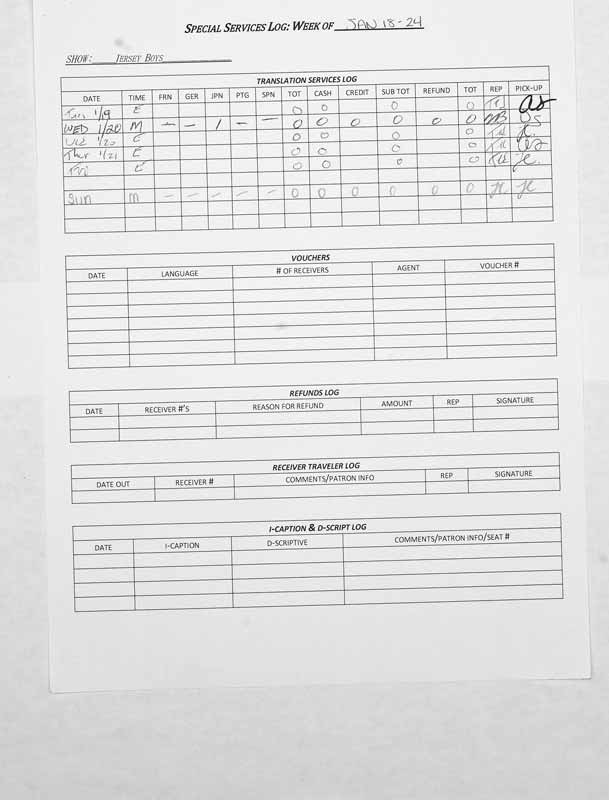 SPECIAL SERVICES LOG: WEEK OF JAN 18-24
SHOW: JERSEY BOYS
TRANSLATION SERVICES LOG
DATE TIME FRN GER JPN PTG SPN TOT CASH CREDIT SUB TOT REFUND TOT REP PICK-UP
Tues 1/19 E 0 0 0 0
WED 1/20 M — — 1 — — 0 0 0 0 0 0 MB
Wed 1/20 E 0 0 0 0
Thur 1/21 E 0 0 0 0
Fri E 0 0 0 0
Sun M — — — — — 0 0 0 0 0 0 JL JL
VOUCHERS
DATE LANGUAGE # OF RECEIVERS AGENT VOUCHER #
REFUNDS LOG
DATE RECEIVER #'S REASON FOR REFUND AMOUNT REP SIGNATURE
RECEIVER TRAVELER LOG
DATE OUT RECEIVER # COMMENTS/PATRON INFO REP SIGNATURE
I-CAPTION & D-SCRIPT LOG
DATE I-CAPTION D-SCRIPTIVE COMMENTS/PATRON INFO/SEAT #